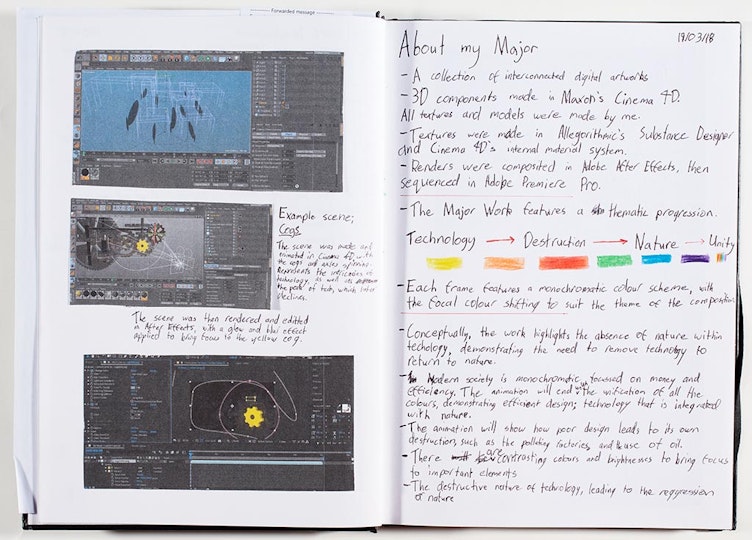 Forwarded message
Example scene;
Cogs
The scene was made and
animated in Cinema 4D, with
the cogs and axles spinning.
Represents the intricacies of
technology, as well as
the peak of tech, which later
declines.
The scene was then rendered and editted
in After Effects, with a glow and blur effect
applied to bring focus to the yellow cog.
About my Major
19/03/18
- A collection of interconnected digital artworks
- 3D components made in Maxon's Cinema 4D.
All textures and models were made by me.
- Textures were made in Allegorithmic's Substance Designer
and Cinema 4D's internal material system.
- Renders were composited in Adobe After Effects, then
sequenced in Adobe Premiere Pro.
- The Major Work features a thematic progression.
Technology → Destruction → Nature → Unity
- Each frame features a monochromatic colour scheme, with
the focal colour shifting to suit the theme of the composition
- Conceptually, the work highlights the absence of nature within
techology, demonstrating the need to remove technology to
return to nature.
- Modern society is monochromatic, focussed on money and
efficiency. The animation will end in the unification of all the
colours, demonstrating efficient design; technology that is integrated
with nature.
- The animation will show how poor design leads to its own
destruction, such as the polluting factories, and use of oil.
- There are contrasting colours and brightnesses to bring focus
to important elements
- The destructive nature of technology, leading to the regression
of nature